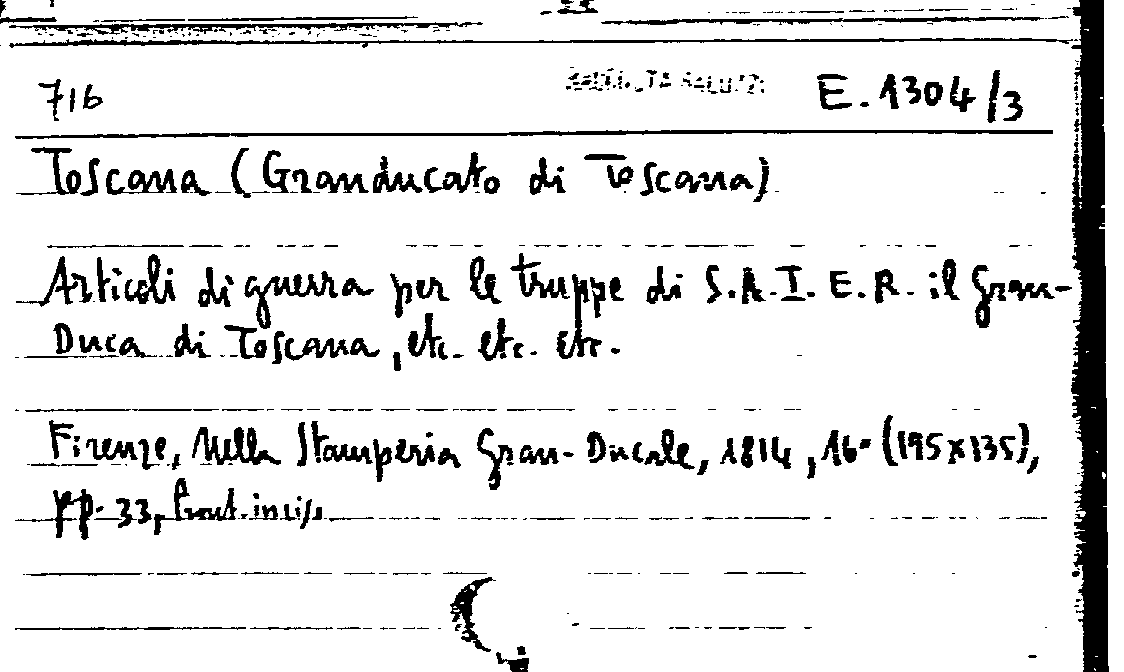 716 RACCOLTA SALUZZO E.1304/3
Toscana (Granducato di Toscana)
Articoli di guerra per le truppe di S.A.I.E.R. il Gran-
Duca di Toscana, etc. etc. etc.
Firenze, Nella Stamperia Gran-Ducale, 1814, 16° (195x135),
pp. 33, front. incis.